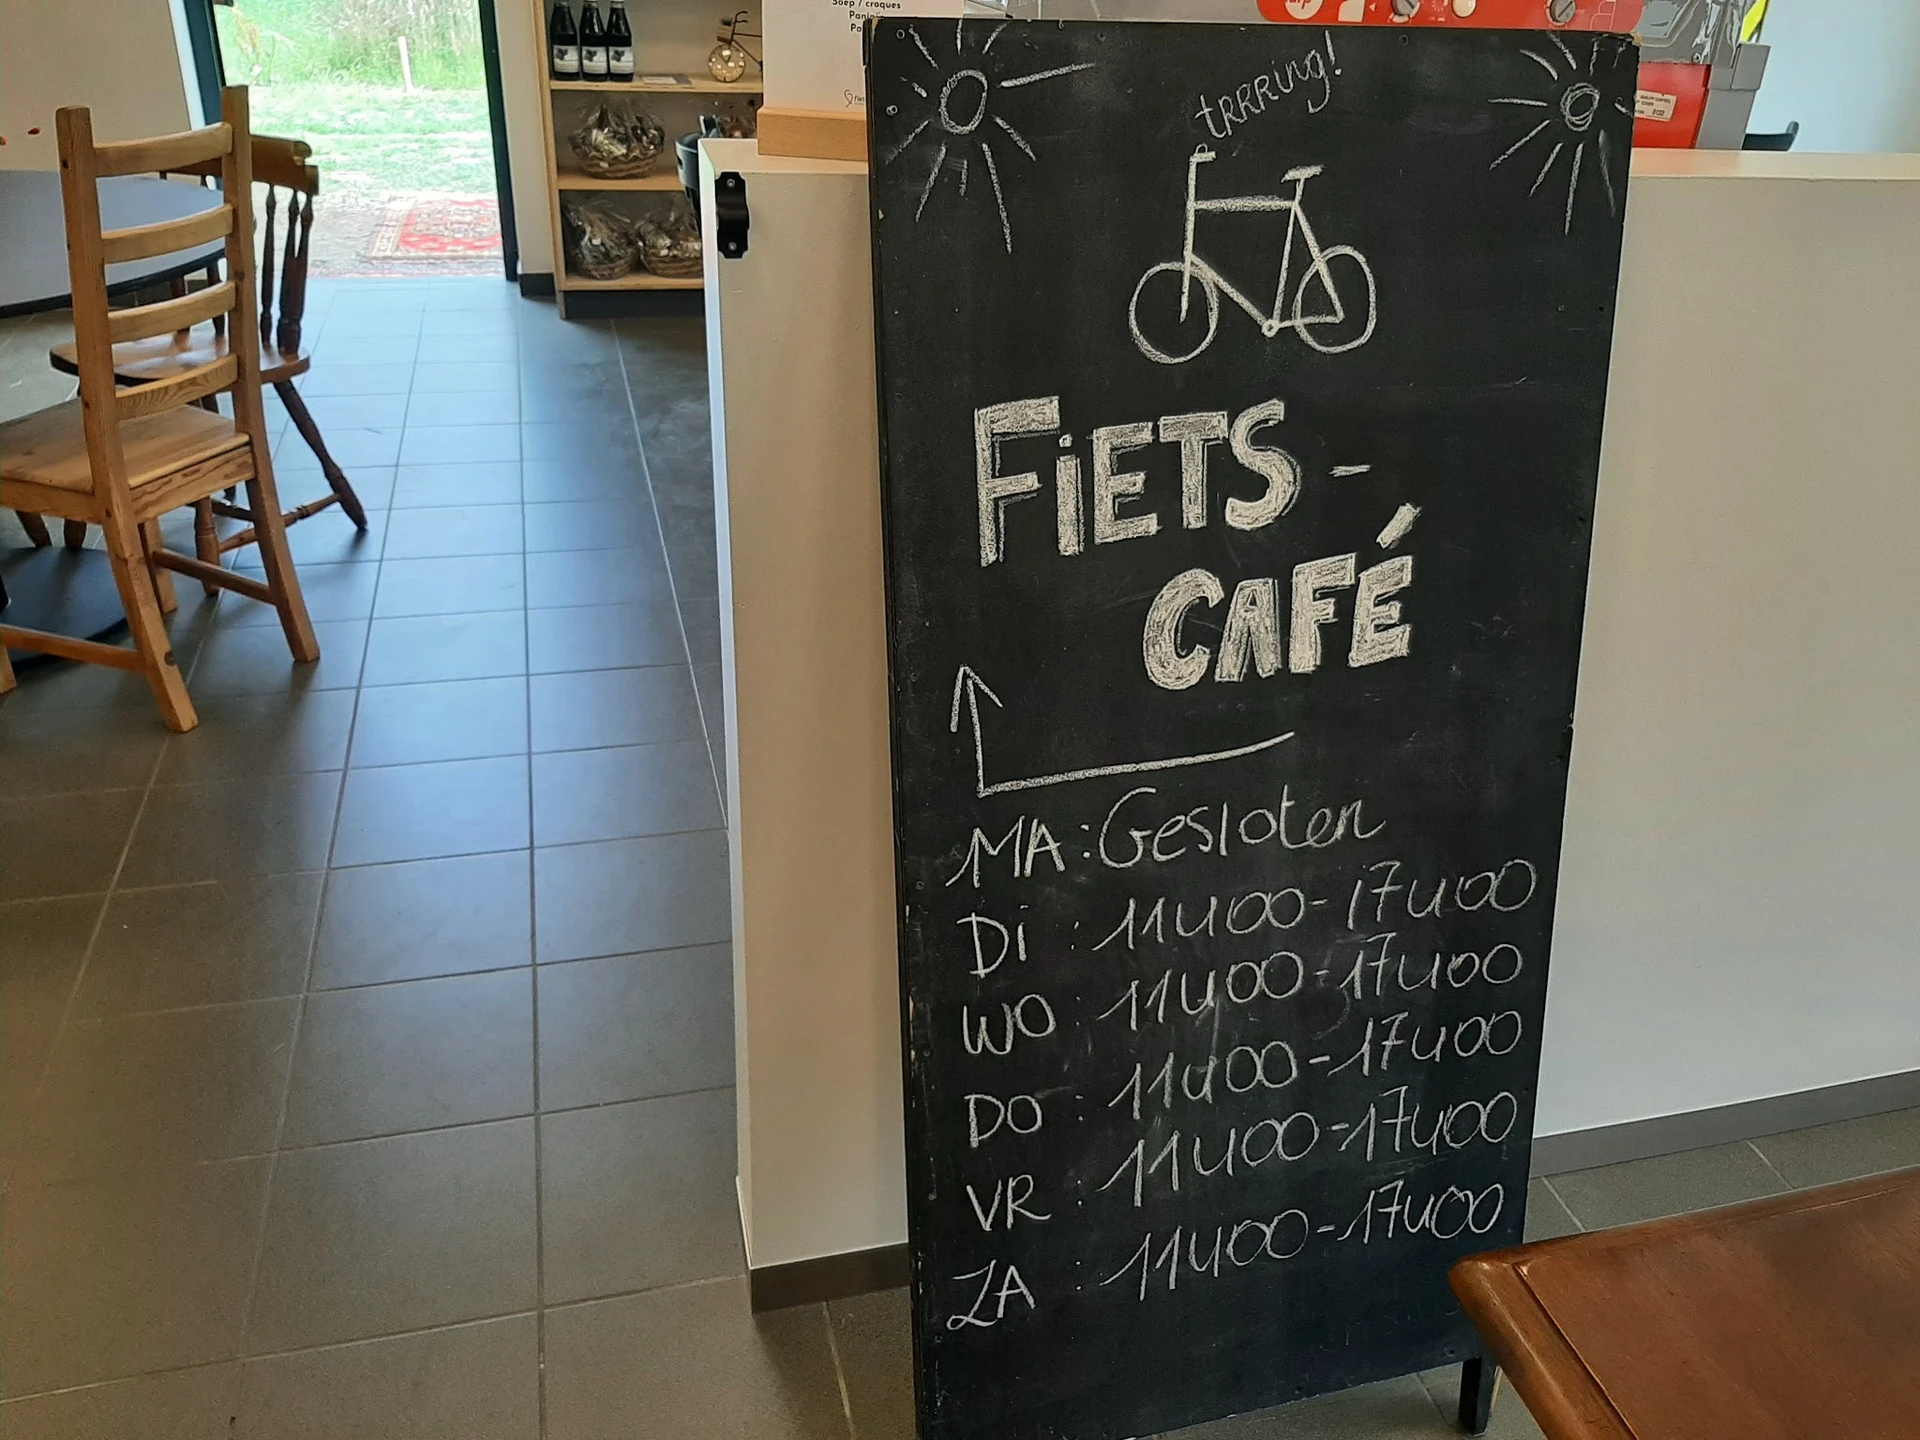 Soep / croques
trrring!
FiETS -
CAFÉ
MA : Gesloten
Di : 11u00 - 17u00
WO : 11u00 - 17u00
DO : 11u00 - 17u00
VR : 11u00 - 17u00
ZA : 11u00 - 17u00